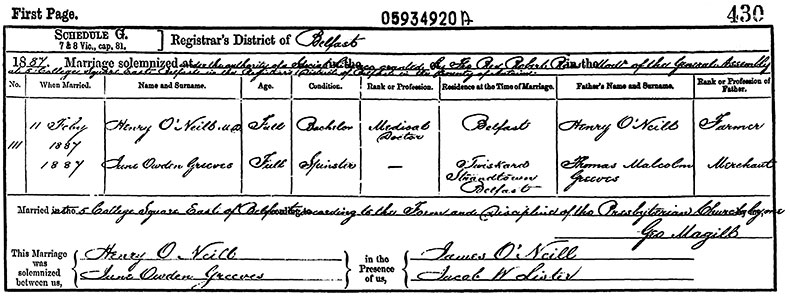 First Page. 05934920 A 430
SCHEDULE G.
7 & 8 Vic., cap. 81.
Registrar's District of Belfast
1887. Marriage solemnized under the authority of a Special Licence granted by the Rev Robert in the of the General Assembly
at 5 College Square East, Belfast in the Registrar's District of Belfast in the County of Antrim
No. When Married. Name and Surname. Age. Condition. Rank or Profession. Residence at the Time of Marriage. Father's Name and Surname. Rank or Profession of Father.
III 11 Feby 1887 Henry O'Neill M.D. Full Bachelor Medical Doctor Belfast Henry O'Neill Farmer
1887 June Owden Greeves Full Spinster — Twiskard Strandtown Belfast Thomas Malcolm Greeves Merchant
Married in the 5 College Square East of Belfast according to the Form and Discipline of the Presbyterian Church by me
Geo Magill
This Marriage was solemnized between us, Henry O Neill
June Owden Greeves
in the Presence of us, James O'Neill
Jacob W Lister